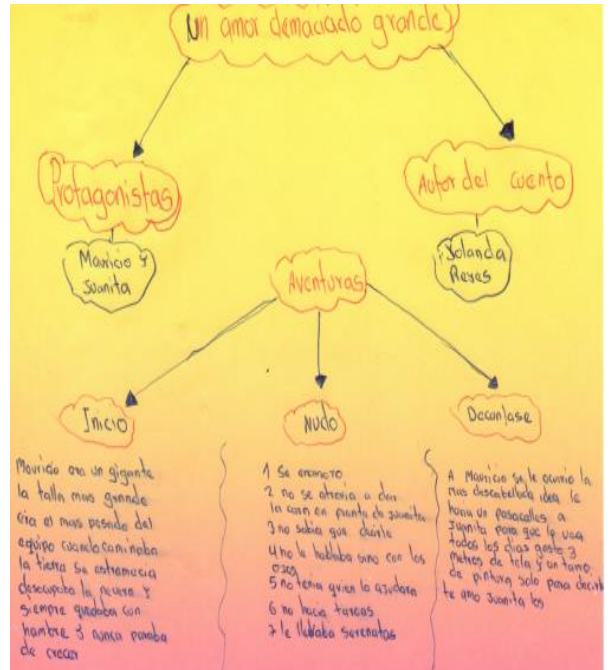 Un amor demaciado grande
Protagonistas
Mauricio y
Juanita
Autor del cuento
Yolanda
Reyes
Aventuras
Inicio
Mauricio era un gigante
la talla mas grande
era el mas pesado del
equipo cuando caminaba
la tierra se estremecia
desocupaba la nevera y
siempre quedaba con
hambre y nunca paraba
de crecer
Nudo
1 Se enamoro
2 no se atrevia a dar
la cara en frente de Juanita
3 no sabia que decirle
4 no le hablaba sino con los
ojos
5 no tenia quien lo ayudara
6 no hacia tareas
7 le llevaba serenatas
Decenlase
A Mauricio se le ocurrio la
mas descabellada idea le
haria un pasacalles a
Juanita para que lo vea
todos los dias gasto 3
metros de tela y un tarro
de pintura solo para decirle
te amo Juanita los